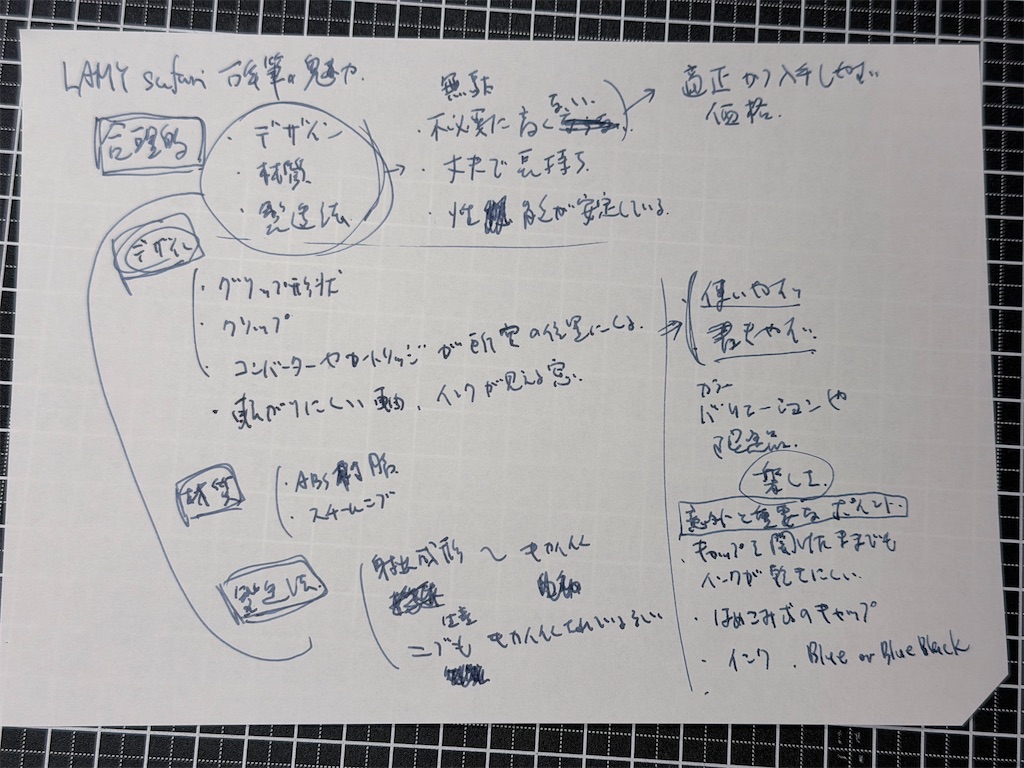 LAMY safari 万年筆の魅力.
合理的
・デザイン
・材質
・製造法.
無駄
・不必要に高くない.
・丈夫で長持ち
・性能が安定している.
適正かつ入手しやすい
価格.
デザイン
・グリップ形状
・クリップ
・コンバーターやカートリッジが所定の位置にくる.
・転がりにくい軸、インクが見える窓.
使いやすい
書きやすい.
カラー
バリエーションや
限定品.
楽しさ
材質
・ABS樹脂
・スチールニブ
製造法.
射出成形 〜 機械化
ニブも機械化されているらしい
意外と重要なポイント.
・キャップを開けたままでも
インクが乾きにくい.
・はめこみ式のキャップ
・インク、Blue or Blue Black